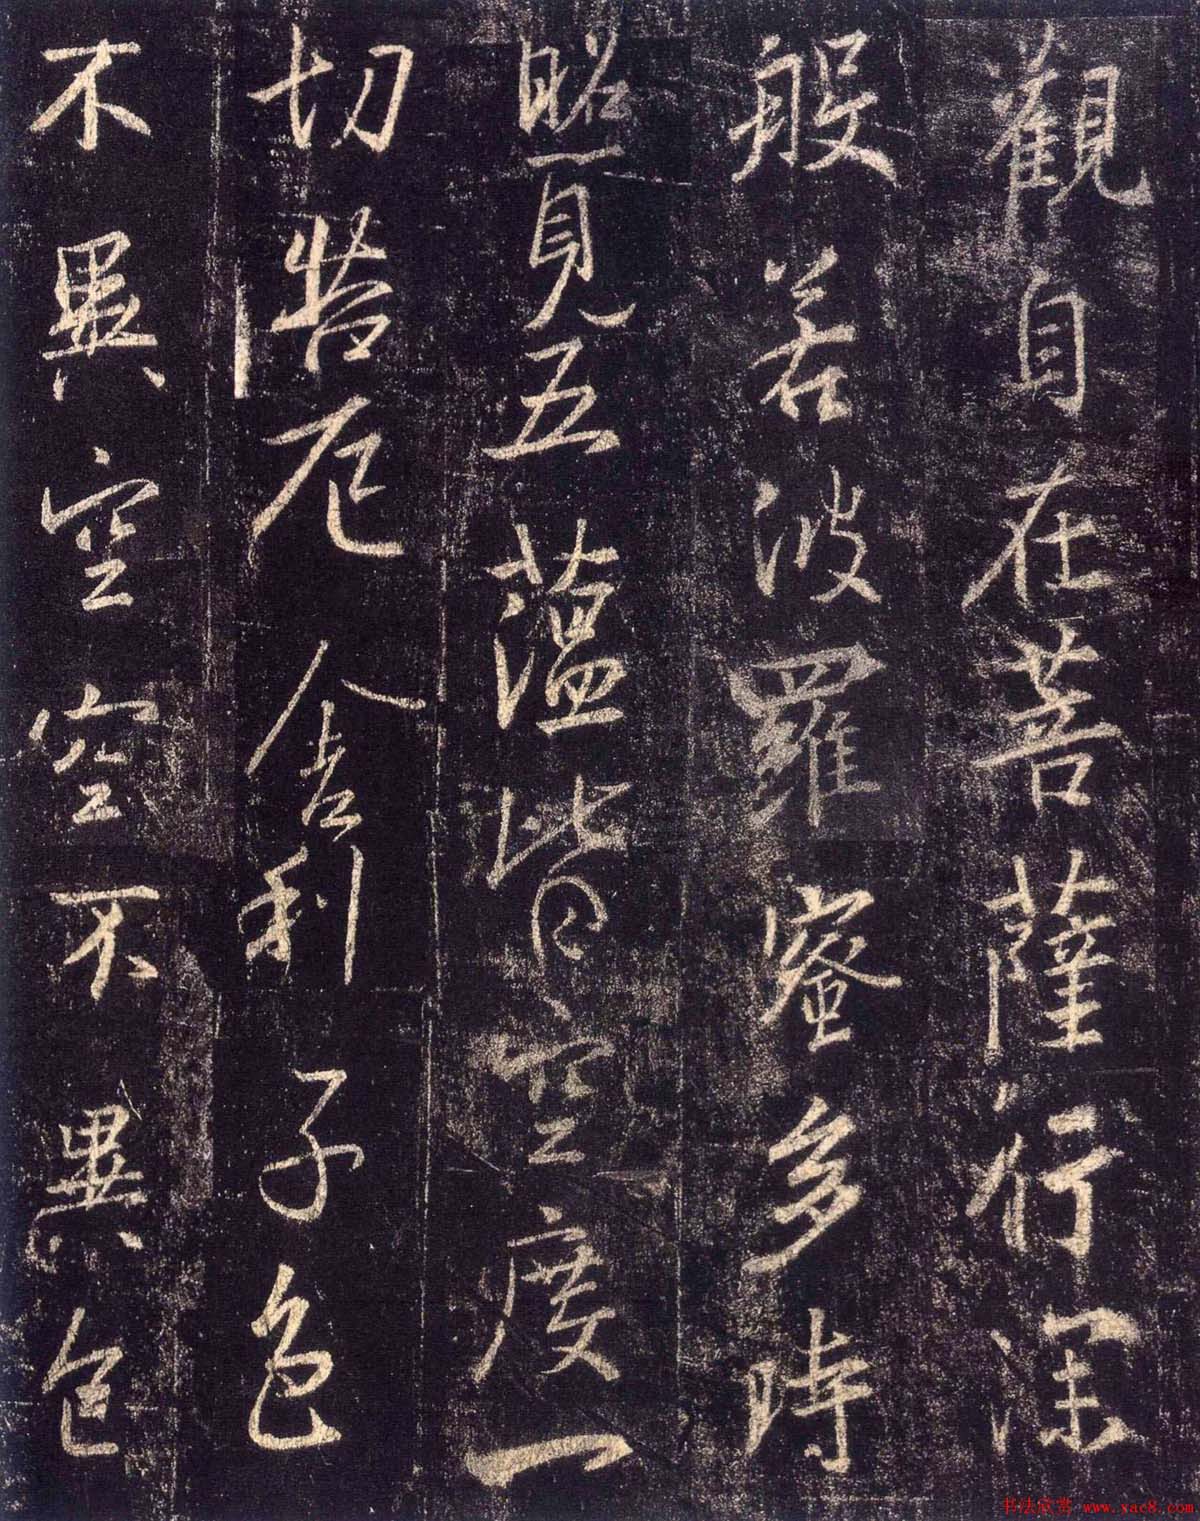 觀自在菩薩行深
般若波羅蜜多時
照見五蘊皆空度一
切苦厄舍利子色
不異空空不異色
书法欣赏 www.xac8.com